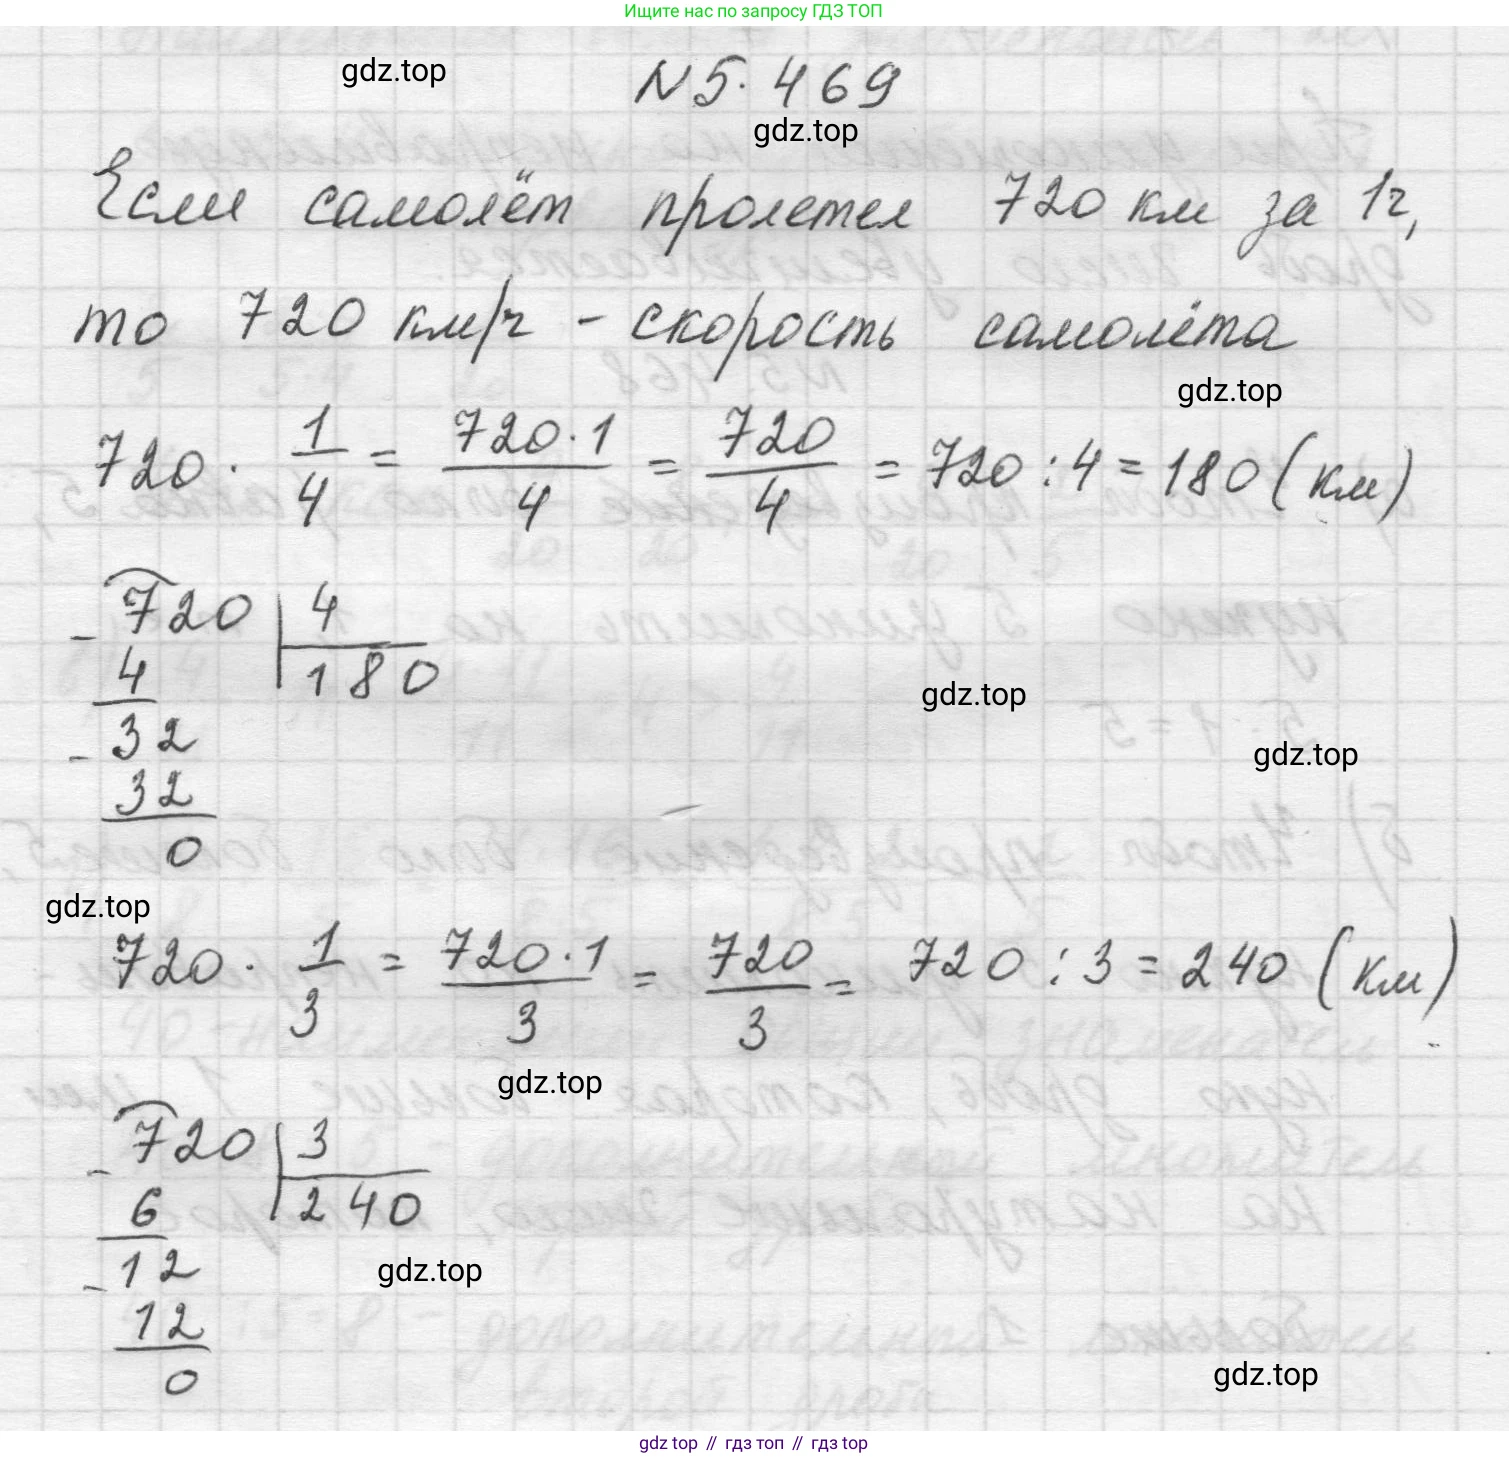 Ищите нас по запросу ГДЗ ТОП
gdz.top
N 5. 469
gdz.top
Если самолёт пролетел 720 км за 1ч,
то 720 км/ч - скорость самолёта
gdz.top
720 · 1/4 = 720·1/4 = 720/4 = 720 : 4 = 180 (км)
- 720 | 4
4 | 180
gdz.top
- 32
gdz.top
32
0
gdz.top
720 · 1/3 = 720·1/3 = 720/3 = 720 : 3 = 240 (км)
gdz.top
- 720 | 3
6 | 240
- 12
gdz.top
12
0
gdz.top
gdz top // гдз топ // гдз top